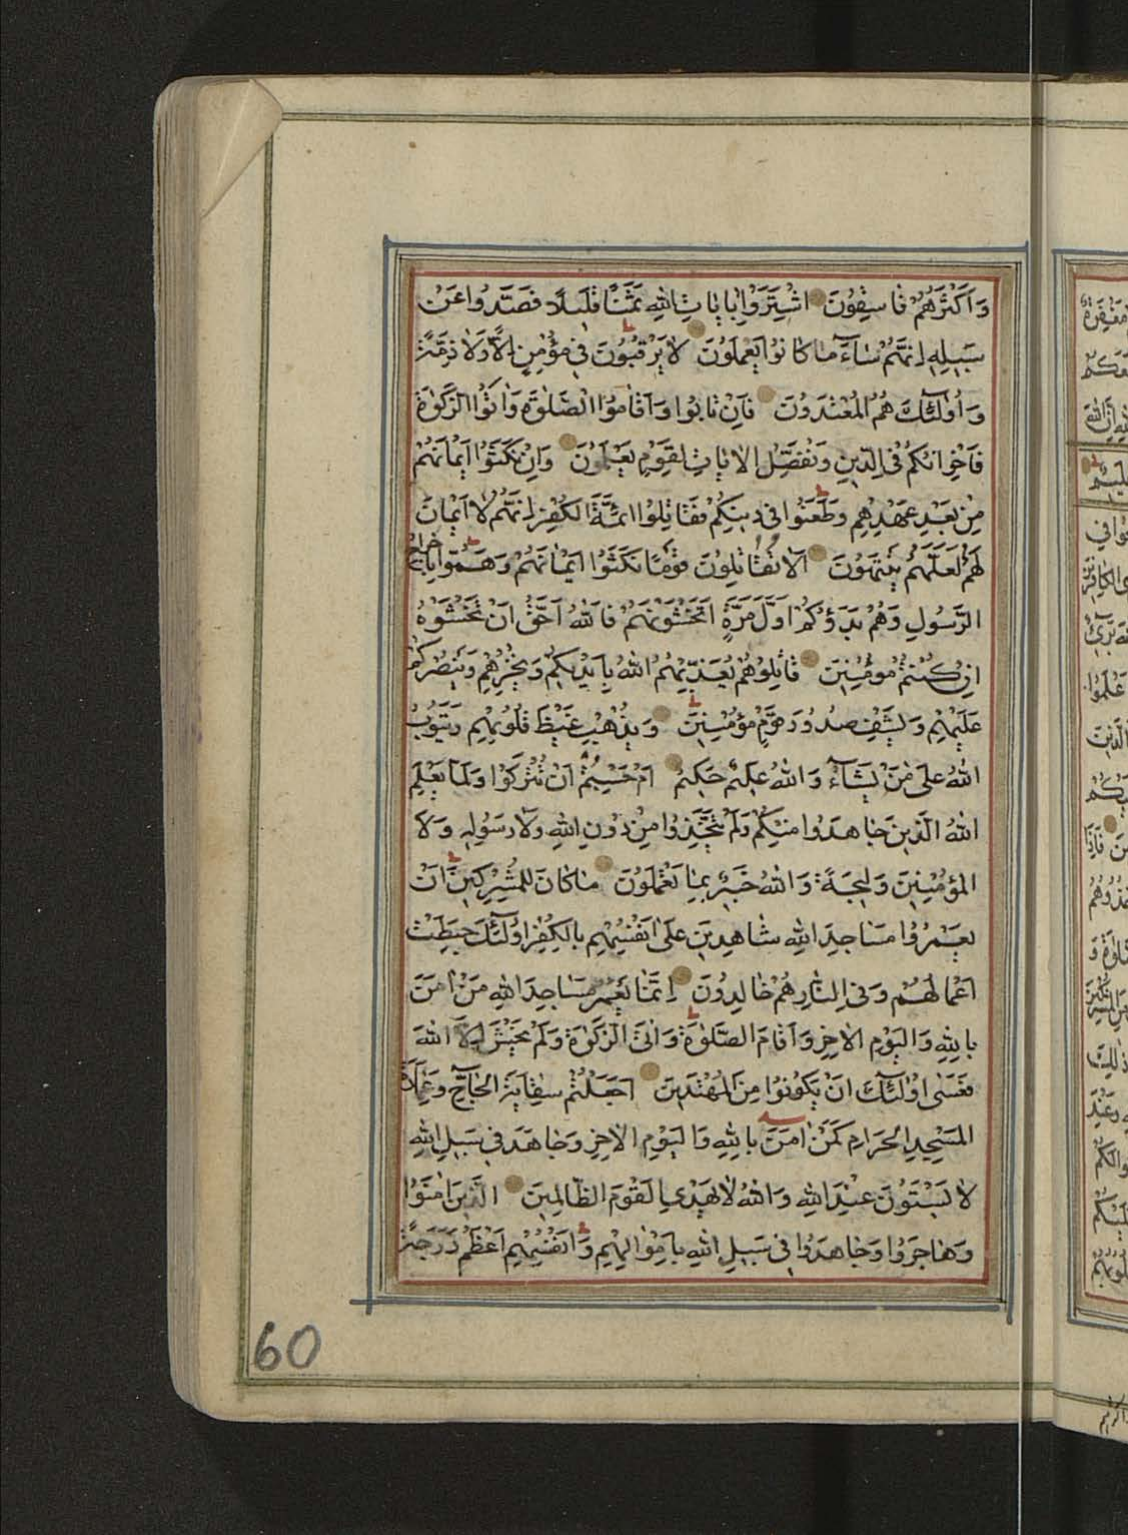 وَاَكْثَرُهُمْ فَاسِقُونَ اشْتَرَوْا بِاٰيَاتِ اللّٰهِ ثَمَنًا قَلِيلًا فَصَدُّوا عَنْ
سَبِيلِهِ اِنَّهُمْ سَاۤءَ مَا كَانُوا يَعْمَلُونَ لَا يَرْقُبُونَ فِي مُؤْمِنٍ اِلًّا وَلَا ذِمَّةً
وَاُولٰۤئِكَ هُمُ الْمُعْتَدُونَ فَاِنْ تَابُوا وَاَقَامُوا الصَّلٰوةَ وَاٰتَوُا الزَّكٰوةَ
فَاِخْوَانُكُمْ فِي الدِّينِ وَنُفَصِّلُ الْاٰيَاتِ لِقَوْمٍ يَعْلَمُونَ وَاِنْ نَكَثُوا اَيْمَانَهُمْ
مِنْ بَعْدِ عَهْدِهِمْ وَطَعَنُوا فِي دِينِكُمْ فَقَاتِلُوا اَئِمَّةَ الْكُفْرِ اِنَّهُمْ لَا اَيْمَانَ
لَهُمْ لَعَلَّهُمْ يَنْتَهُونَ اَلَا تُقَاتِلُونَ قَوْمًا نَكَثُوا اَيْمَانَهُمْ وَهَمُّوا بِاِخْرَاجِ
الرَّسُولِ وَهُمْ بَدَؤُكُمْ اَوَّلَ مَرَّةٍ اَتَخْشَوْنَهُمْ فَاللّٰهُ اَحَقُّ اَنْ تَخْشَوْهُ
اِنْ كُنْتُمْ مُؤْمِنِينَ قَاتِلُوهُمْ يُعَذِّبْهُمُ اللّٰهُ بِاَيْدِيكُمْ وَيُخْزِهِمْ وَيَنْصُرْكُمْ
عَلَيْهِمْ وَيَشْفِ صُدُورَ قَوْمٍ مُؤْمِنِينَ وَيُذْهِبْ غَيْظَ قُلُوبِهِمْ وَيَتُوبُ
اللّٰهُ عَلٰى مَنْ يَشَاۤءُ وَاللّٰهُ عَلِيمٌ حَكِيمٌ اَمْ حَسِبْتُمْ اَنْ تُتْرَكُوا وَلَمَّا يَعْلَمِ
اللّٰهُ الَّذِينَ جَاهَدُوا مِنْكُمْ وَلَمْ يَتَّخِذُوا مِنْ دُونِ اللّٰهِ وَلَا رَسُولِهِ وَلَا
الْمُؤْمِنِينَ وَلِيجَةً وَاللّٰهُ خَبِيرٌ بِمَا تَعْمَلُونَ مَا كَانَ لِلْمُشْرِكِينَ اَنْ
يَعْمُرُوا مَسَاجِدَ اللّٰهِ شَاهِدِينَ عَلٰى اَنْفُسِهِمْ بِالْكُفْرِ اُولٰۤئِكَ حَبِطَتْ
اَعْمَالُهُمْ وَفِي النَّارِ هُمْ خَالِدُونَ اِنَّمَا يَعْمُرُ مَسَاجِدَ اللّٰهِ مَنْ اٰمَنَ
بِاللّٰهِ وَالْيَوْمِ الْاٰخِرِ وَاَقَامَ الصَّلٰوةَ وَاٰتَى الزَّكٰوةَ وَلَمْ يَخْشَ اِلَّا اللّٰهَ
فَعَسٰى اُولٰۤئِكَ اَنْ يَكُونُوا مِنَ الْمُهْتَدِينَ اَجَعَلْتُمْ سِقَايَةَ الْحَاۤجِّ وَعِمَارَةَ
الْمَسْجِدِ الْحَرَامِ كَمَنْ اٰمَنَ بِاللّٰهِ وَالْيَوْمِ الْاٰخِرِ وَجَاهَدَ فِي سَبِيلِ اللّٰهِ
لَا يَسْتَوُونَ عِنْدَ اللّٰهِ وَاللّٰهُ لَا يَهْدِي الْقَوْمَ الظَّالِمِينَ الَّذِينَ اٰمَنُوا
وَهَاجَرُوا وَجَاهَدُوا فِي سَبِيلِ اللّٰهِ بِاَمْوَالِهِمْ وَاَنْفُسِهِمْ اَعْظَمُ دَرَجَةً
60